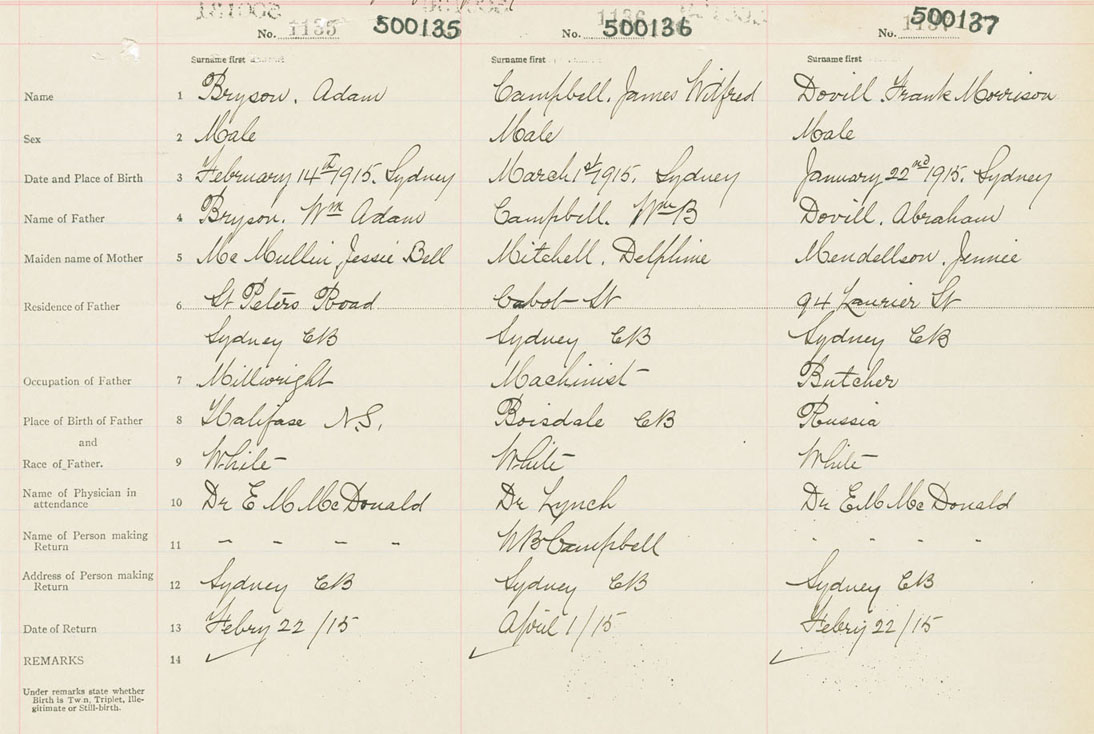 No. 1135 500135 No. 1136 500136 No. 500137
Surname first Surname first Surname first
Name 1 Bryson, Adam Campbell, James Wilfred Dovill, Frank Morrison
Sex 2 Male Male Male
Date and Place of Birth 3 February 14th 1915. Sydney March 1st 1915. Sydney January 22nd 1915. Sydney
Name of Father 4 Bryson, Wm Adam Campbell, Wm B Dovill, Abraham
Maiden name of Mother 5 Mc Mullin Jessie Bell Mitchell, Delphine Mendellson, Jennie
Residence of Father 6 St Peters Road Cabot St 94 Laurier St
Sydney CB Sydney CB Sydney CB
Occupation of Father 7 Millwright Machinist Butcher
Place of Birth of Father 8 Halifax N.S. Boisdale CB Russia
and
Race of Father. 9 White White White
Name of Physician in attendance 10 Dr E M McDonald Dr Lynch Dr E M McDonald
Name of Person making Return 11 " " " " W B Campbell " " " "
Address of Person making Return 12 Sydney CB Sydney CB Sydney CB
Date of Return 13 Febry 22/15 April 1/15 Febry 22/15
REMARKS 14
Under remarks state whether
Birth is Twin, Triplet, Ille-
gitimate or Still-birth.